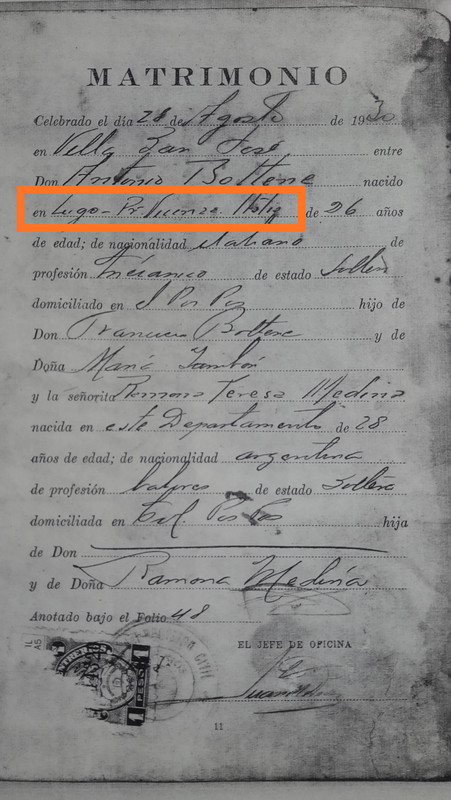 MATRIMONIO
Celebrado el día 28 de Agosto de 1930
en Villa San José entre
Don Antonio Boltene nacido
en Lugo - Pr. Vicenza Italia de 26 años
de edad; de nacionalidad italiano de
profesión mecanico de estado soltero
domiciliado en hijo de
Don Francisco Boltene y de
Doña María
y la señorita Ramona Teresa Medina
nacida en este Departamento de 28
años de edad; de nacionalidad argentina
de profesión labores de estado soltera
domiciliada en Col. hija
de Don
y de Doña Ramona Medina
Anotado bajo el Folio 48
EL JEFE DE OFICINA
1 PESO 1
11